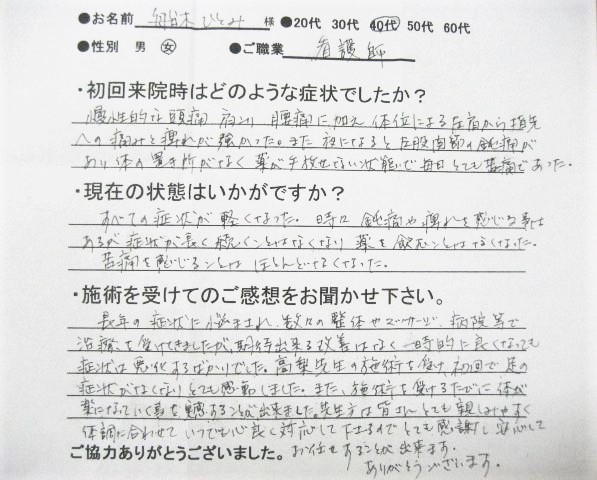 ●お名前 船木 ひとみ 様 ●20代 30代 40代 50代 60代
●性別 男 女 ●ご職業 看護師
・初回来院時はどのような症状でしたか？
慢性的な頭痛 肩こり 腰痛に加え 体位による左肩から指先
への痛みと痺れが強かった。また 夜になると左股関節の鈍痛が
あり体の置き所がなく 薬が手放せない状態で毎日とても苦痛であった。
・現在の状態はいかがですか？
すべての症状が軽くなった。時々 鈍痛や痺れを感じる事は
あるが症状が長く続くことはなくなり 薬を飲むことはなくなった。
苦痛を感じることは ほとんどなくなった。
・施術を受けてのご感想をお聞かせ下さい。
長年の症状に悩まされ、数々の整体やマッサージ、病院等で
治療を受けてきましたが、期待出来る改善はなく 一時的に良くなっても
症状は悪化するばかりでした。高梨先生の施術を受け、初回で足の
症状がなくなりとても感動しました。また、施術を受けるたびに体が
楽になっていく事を実感することが出来ました。先生方は皆さん とても親しみやすく
体調に合わせて いつでも心良く対応して下さるので とても感謝し 安心して
ご協力ありがとうございました。お任せすることが出来ます。
ありがとうございます。